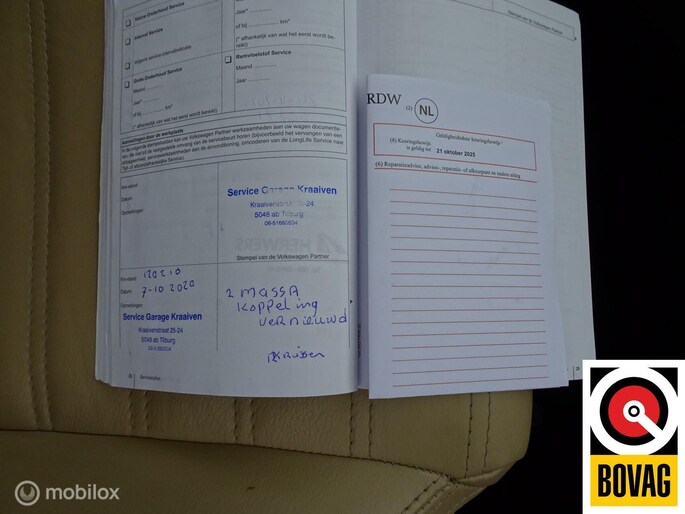 Kleine Onderhoud Service
Interval Service
Volgens service-intervalindicatie
Grote Onderhoud Service
Maand
Jaar*
of bij km*
(* afhankelijk van wat het eerst wordt bereikt)
Jaar*
of bij km*
(* afhankelijk van wat het eerst wordt be-
reikt)
Remvloeistof Service
Maand
Jaar
Stempel van de Volkswagen Partner
Aantekeningen door de werkplaats
Km-stand
Datum
Opmerkingen
Service Garage Kraaiven
Kraaivenstraat 25-24
5048 ab Tilburg
Stempel van de Volkswagen Partner
Km-stand 120210
Datum 7-10 2020
Opmerkingen
Service Garage Kraaiven
Kraaivenstraat 25-24
5048 ab Tilburg
2 MASSA
KOPPELing
VERNIEUWD
RDW (2) NL
Geldigheidsduur keuringsbewijs
(5) Keuringsbewijs
is geldig tot 21 oktober 2025
(6) Reparatieadvies, advies-, reparatie- of afkeurpunt en nadere uitleg
mobilox
BOVAG